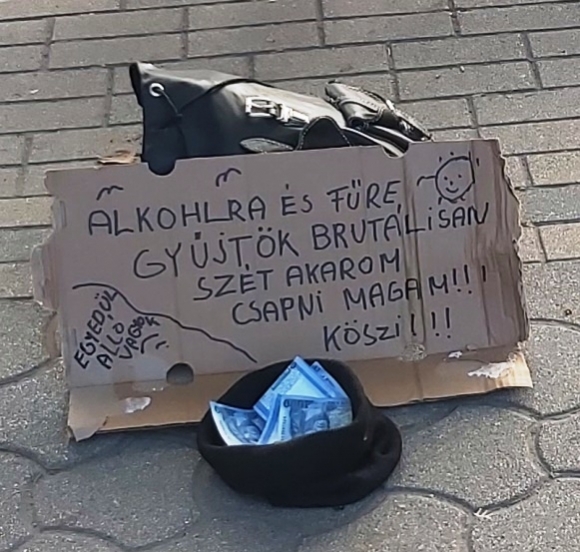 ALKOHLRA ÉS FŰRE,
GYŰJTÖK BRUTÁLISAN
SZÉT AKAROM
CSAPNI MAGAM!!!
KÖSZI!!!
EGYEDÜL
ÁLLÓ
VAGYOK